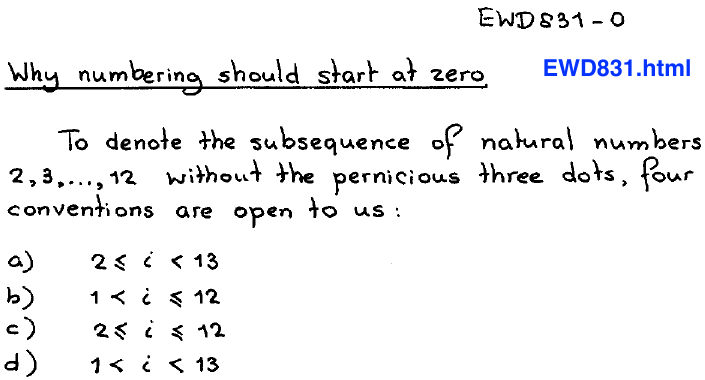 EWD831-0
Why numbering should start at zero. EWD831.html
To denote the subsequence of natural numbers
2, 3, ..., 12 without the pernicious three dots, four
conventions are open to us:
a) 2 ≤ i < 13
b) 1 < i ≤ 12
c) 2 ≤ i ≤ 12
d) 1 < i < 13